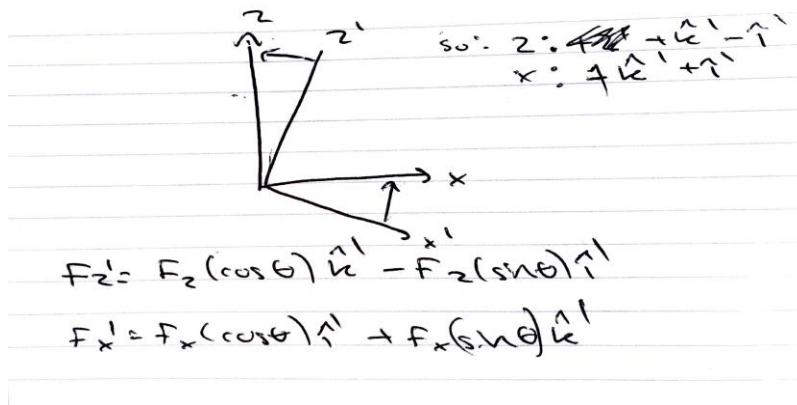 z
z'
so: z: +k̂' - î'
x: +k̂' + î'
x
x'
Fz' = Fz (cosθ) k̂' - Fz (sinθ) î'
Fx' = Fx (cosθ) î' + Fx (sinθ) k̂'